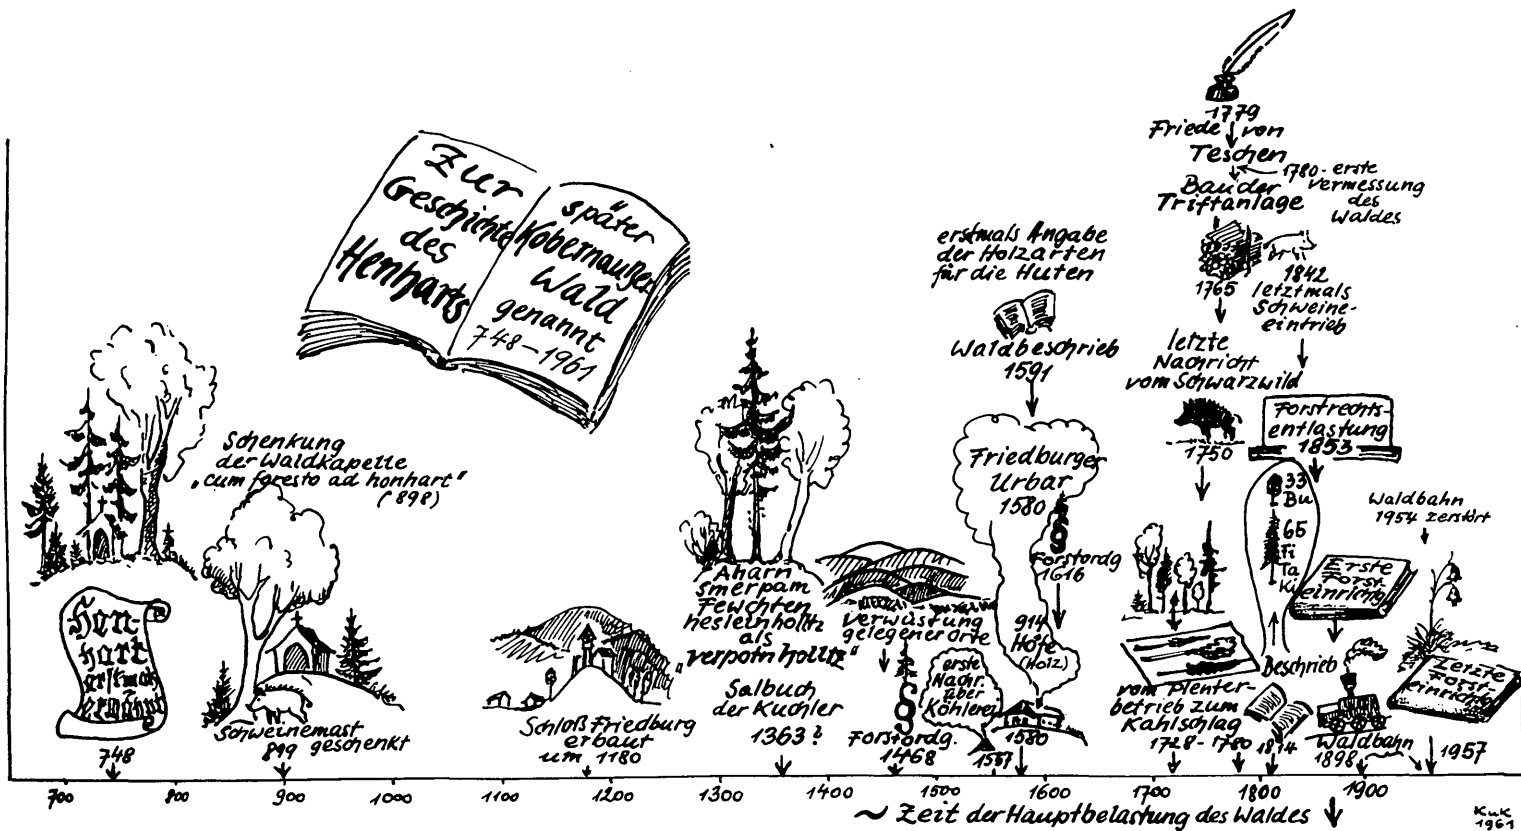 Zur
Geschichte
des
Henharts
später
Kobernaußer
Wald
genannt
748-1961
Hon-
hart
erstmals
erwähnt
748
Schenkung
der Waldkapelle
„cum foresto ad honhart"
(898)
Schweinemast
899 geschenkt
Schloß Friedburg
erbaut
um 1180
Aharn
smerpam
Fewchten
hesleinholltz
als
„verpotn holltz"
Salbuch
der Kuchler
1363?
Verwüstung
gelegener Orte
§
Forstordg.
1468
erste
Nachr.
über
Köhlerei
1557
erstmals Angabe
der Holzarten
für die Huten
Waldbeschrieb
1591
Friedburger
Urbar
1580
§
Forstordg
1616
914
Höfe
(Holz)
1580
1779
Friede von
Teschen
1780 - erste
Vermessung
des
Waldes
Bau der
Triftanlage
1765
1842
letztmals
Schweine-
eintrieb
letzte
Nachricht
vom Schwarzwild
1750
Forstrechts-
entlastung
1853
33
Bu
65
Fi
Ta
Ki
Beschrieb
1814
vom Plenter-
betrieb zum
Kahlschlag
1728 - 1780
Erste
Forst-
einrichtg
Waldbahn
1954 zerstört
Waldbahn
1898
Letzte
Forst-
einrichtg
1957
700 800 900 1000 1100 1200 1300 1400 1500 1600 1700 1800 1900
~ Zeit der Hauptbelastung des Waldes
KuK
1961